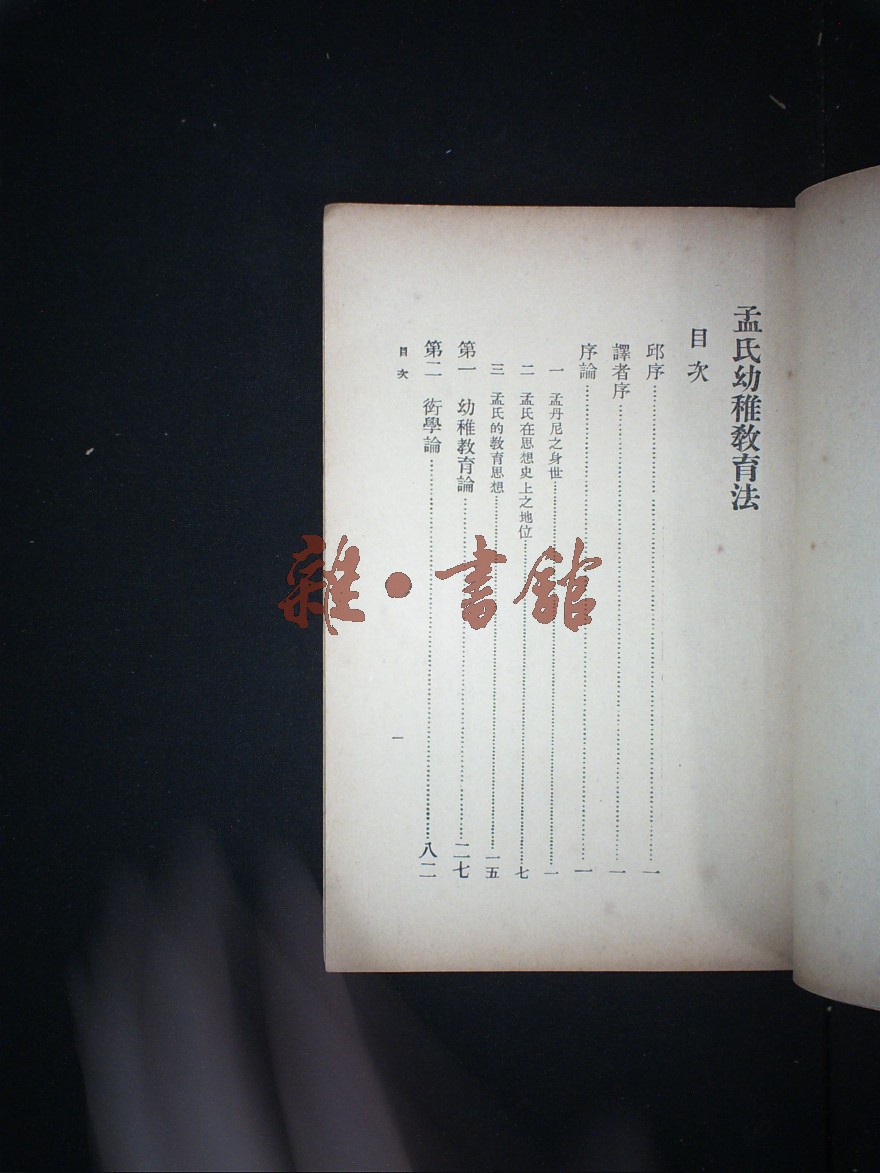 孟氏幼稚教育法
目次
邱序……一
譯者序……一
序論……一
一 孟丹尼之身世……一
二 孟氏在思想史上之地位……七
三 孟氏的教育思想……一五
第一 幼稚教育論……二七
第二 衒學論……八二
目次
一
雜·書館